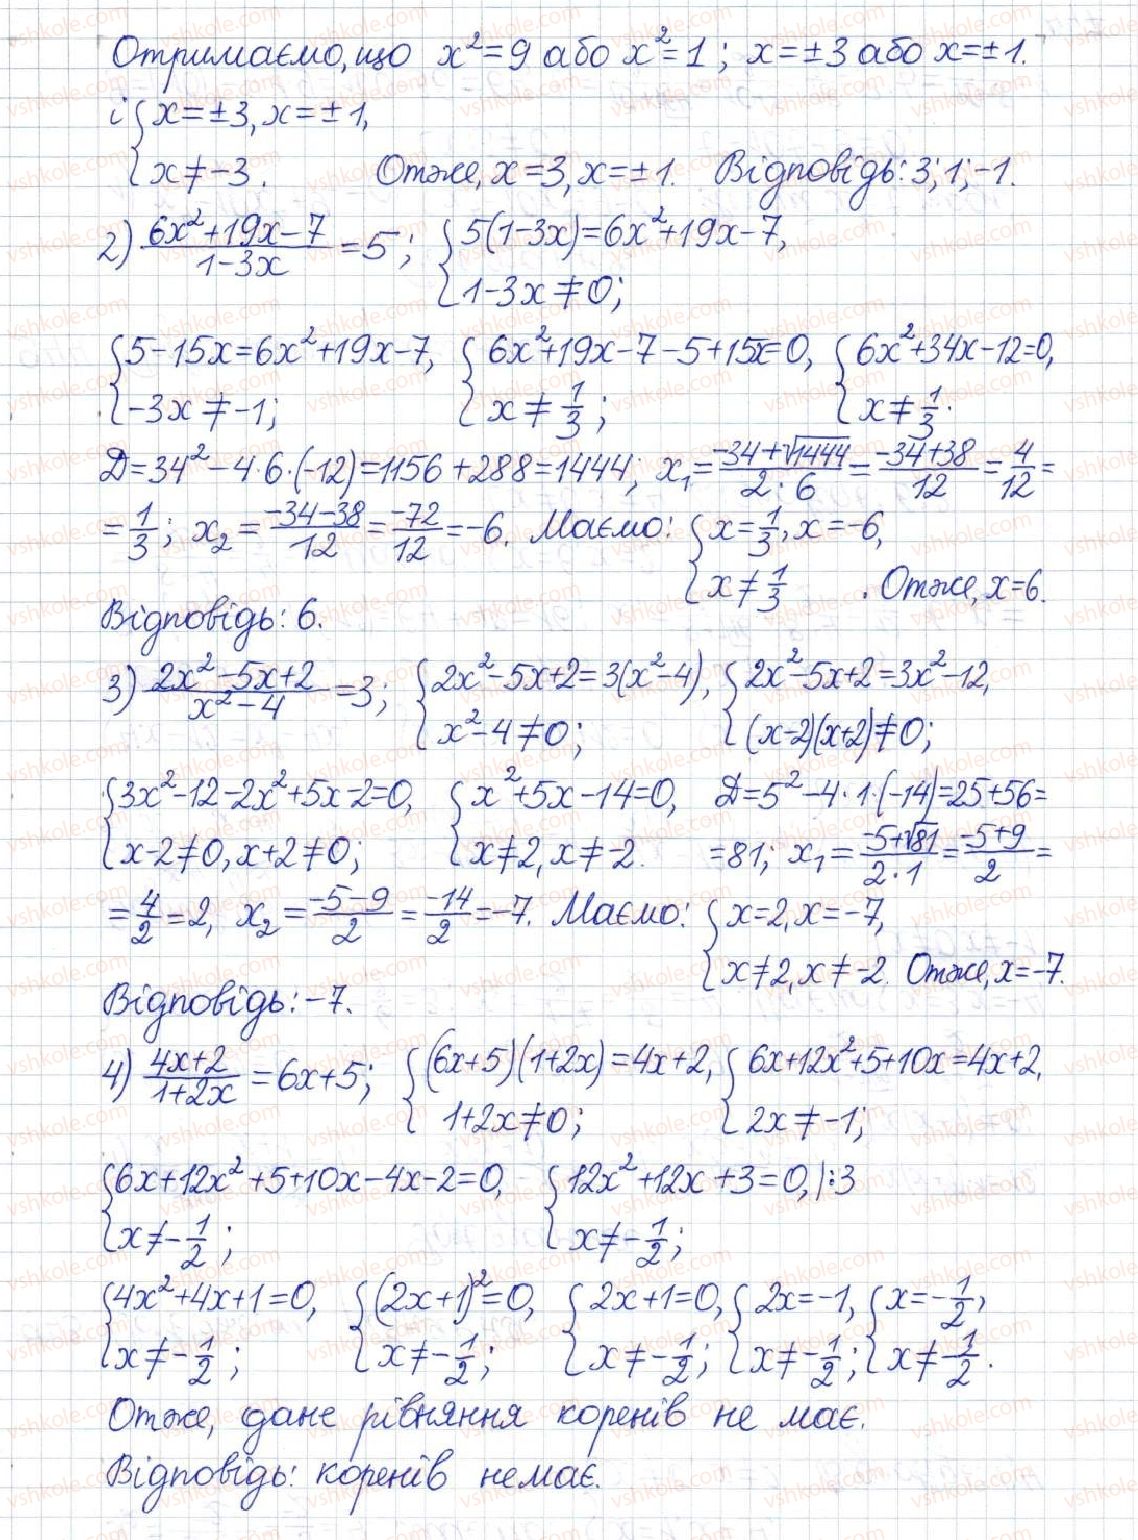 Отримаємо, що x² = 9 або x² = 1; x = ±3 або x = ±1.
і { x = ±3, x = ±1,
{ x ≠ -3. Отже, x = 3, x = ±1. Відповідь: 3; 1; -1.
2) (6x² + 19x - 7)/(1 - 3x) = 5; { 5(1 - 3x) = 6x² + 19x - 7,
{ 1 - 3x ≠ 0;
{ 5 - 15x = 6x² + 19x - 7, { 6x² + 19x - 7 - 5 + 15x = 0, { 6x² + 34x - 12 = 0,
{ -3x ≠ -1; { x ≠ 1/3; { x ≠ 1/3.
D = 34² - 4·6·(-12) = 1156 + 288 = 1444; x₁ = (-34 + √1444)/(2·6) = (-34 + 38)/12 = 4/12 =
= 1/3; x₂ = (-34 - 38)/12 = -72/12 = -6. Маємо: { x = 1/3, x = -6,
{ x ≠ 1/3. Отже, x = 6.
Відповідь: 6.
3) (2x² - 5x + 2)/(x² - 4) = 3; { 2x² - 5x + 2 = 3(x² - 4), { 2x² - 5x + 2 = 3x² - 12,
{ x² - 4 ≠ 0; { (x - 2)(x + 2) ≠ 0;
{ 3x² - 12 - 2x² + 5x - 2 = 0, { x² + 5x - 14 = 0, D = 5² - 4·1·(-14) = 25 + 56 =
{ x - 2 ≠ 0, x + 2 ≠ 0; { x ≠ 2, x ≠ -2. = 81; x₁ = (-5 + √81)/(2·1) = (-5 + 9)/2 =
= 4/2 = 2, x₂ = (-5 - 9)/2 = -14/2 = -7. Маємо: { x = 2, x = -7,
{ x ≠ 2, x ≠ -2. Отже, x = -7.
Відповідь: -7.
4) (4x + 2)/(1 + 2x) = 6x + 5; { (6x + 5)(1 + 2x) = 4x + 2, { 6x + 12x² + 5 + 10x = 4x + 2,
{ 1 + 2x ≠ 0; { 2x ≠ -1;
{ 6x + 12x² + 5 + 10x - 4x - 2 = 0, { 12x² + 12x + 3 = 0, |:3
{ x ≠ -1/2; { x ≠ -1/2;
{ 4x² + 4x + 1 = 0, { (2x + 1)² = 0, { 2x + 1 = 0, { 2x = -1, { x = -1/2,
{ x ≠ -1/2; { x ≠ -1/2; { x ≠ -1/2; { x ≠ -1/2; { x ≠ -1/2.
Отже, дане рівняння коренів не має.
Відповідь: коренів немає.